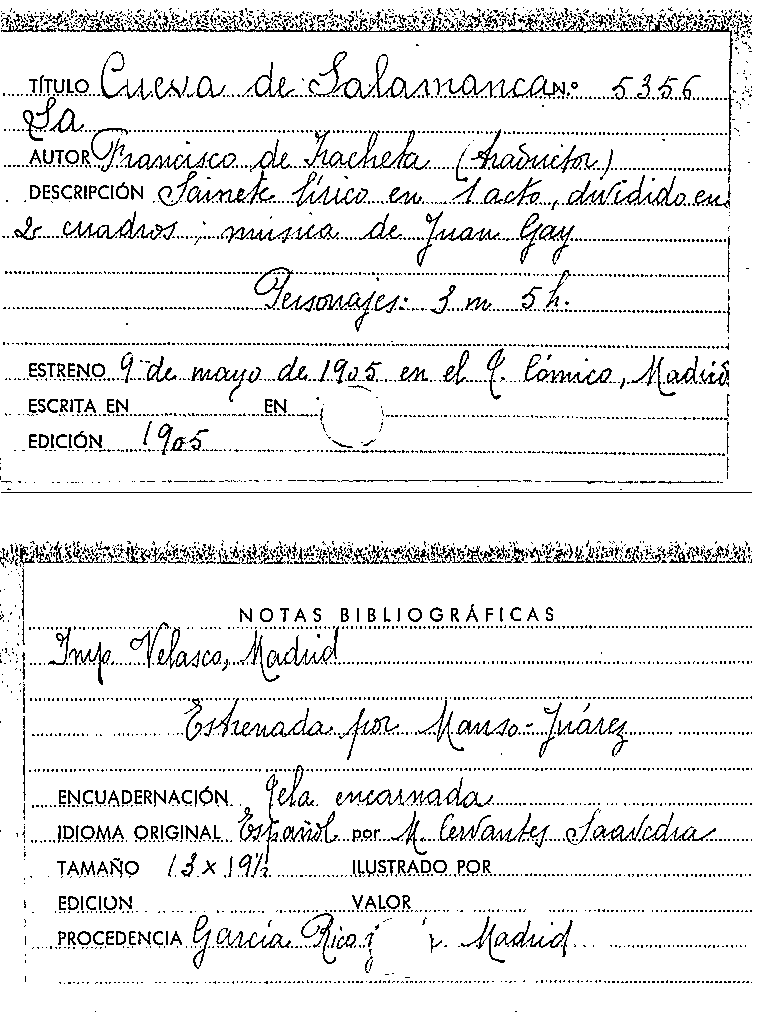 TÍTULO Cueva de Salamanca N.º 5356
La
AUTOR Francisco de Tracheta (traductor)
DESCRIPCIÓN Sainete lírico en 1 acto, dividido en
2 cuadros; música de Juan Gay
Personajes: 3 m 5 h.
ESTRENO 9 de mayo de 1905 en el T. Cómico, Madrid
ESCRITA EN EN
EDICIÓN 1905
NOTAS BIBLIOGRÁFICAS
Imp. Velasco, Madrid
Estrenada por Manso-Juárez
ENCUADERNACIÓN Tela encarnada
IDIOMA ORIGINAL Español por M. Cervantes Saavedra
TAMAÑO 13 x 19½ ILUSTRADO POR
EDICION VALOR
PROCEDENCIA García Rico y Madrid